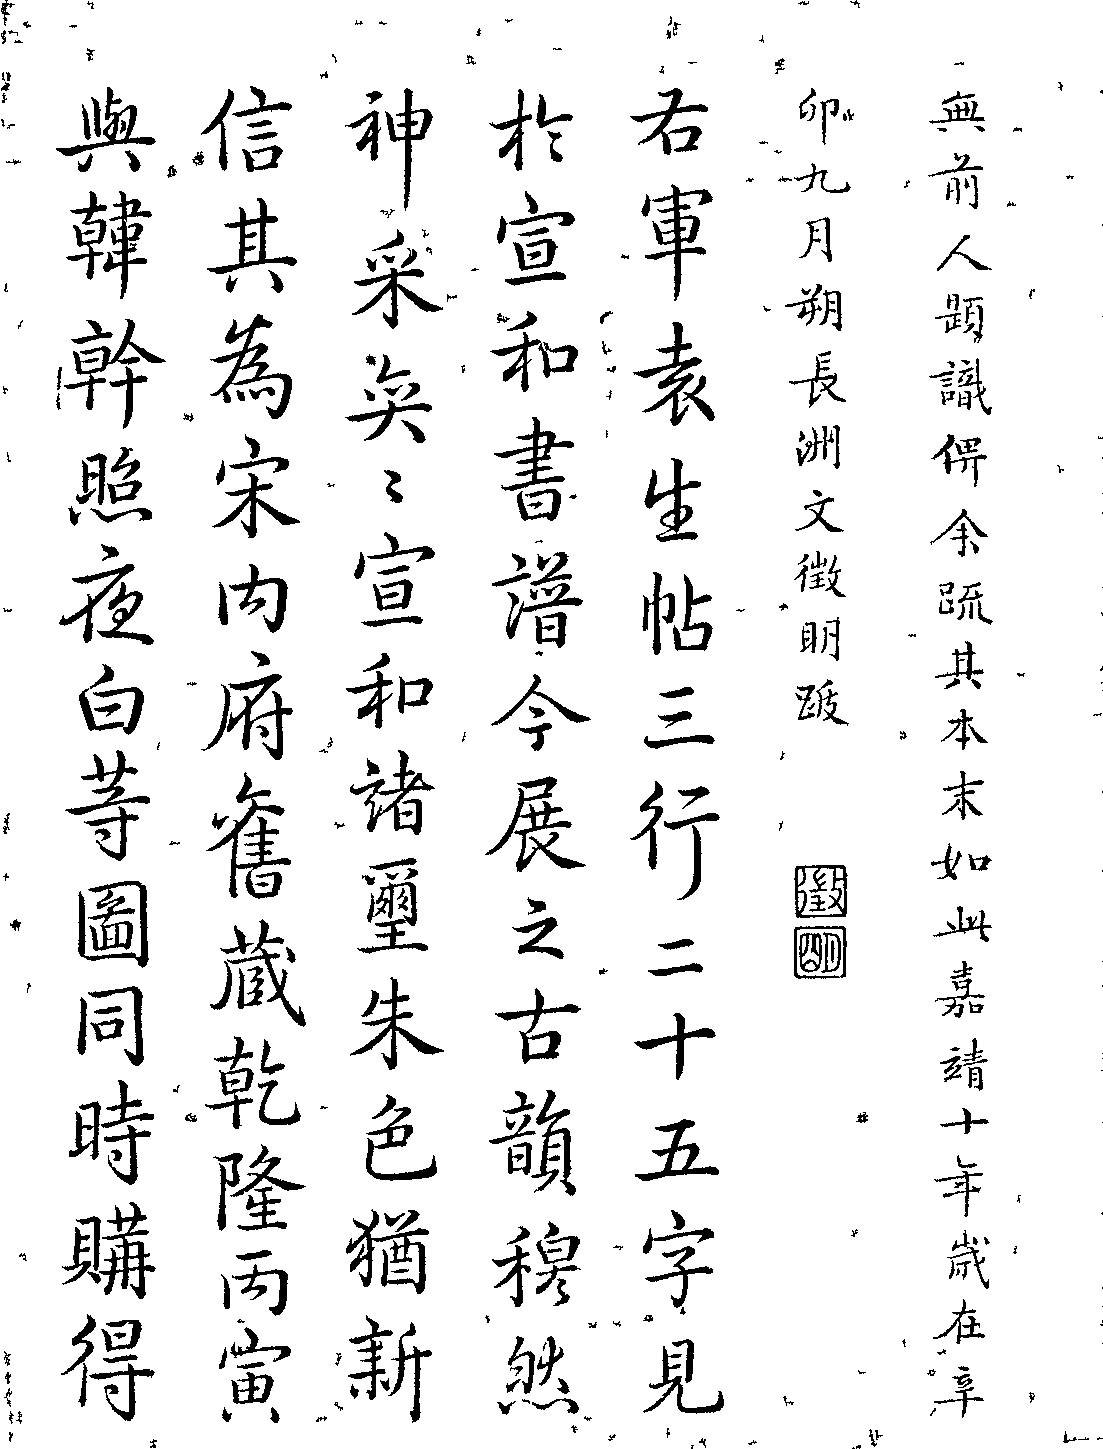 無前人題識俾余疏其本末如此嘉靖十年歲在辛
卯九月朔長洲文徵明跋
徵
明
右軍袁生帖三行二十五字見
於宣和書譜今展之古韻穆然
神采奕〻宣和諸璽朱色猶新
信其為宋內府舊藏乾隆丙寅
與韓幹照夜白等圖同時購得